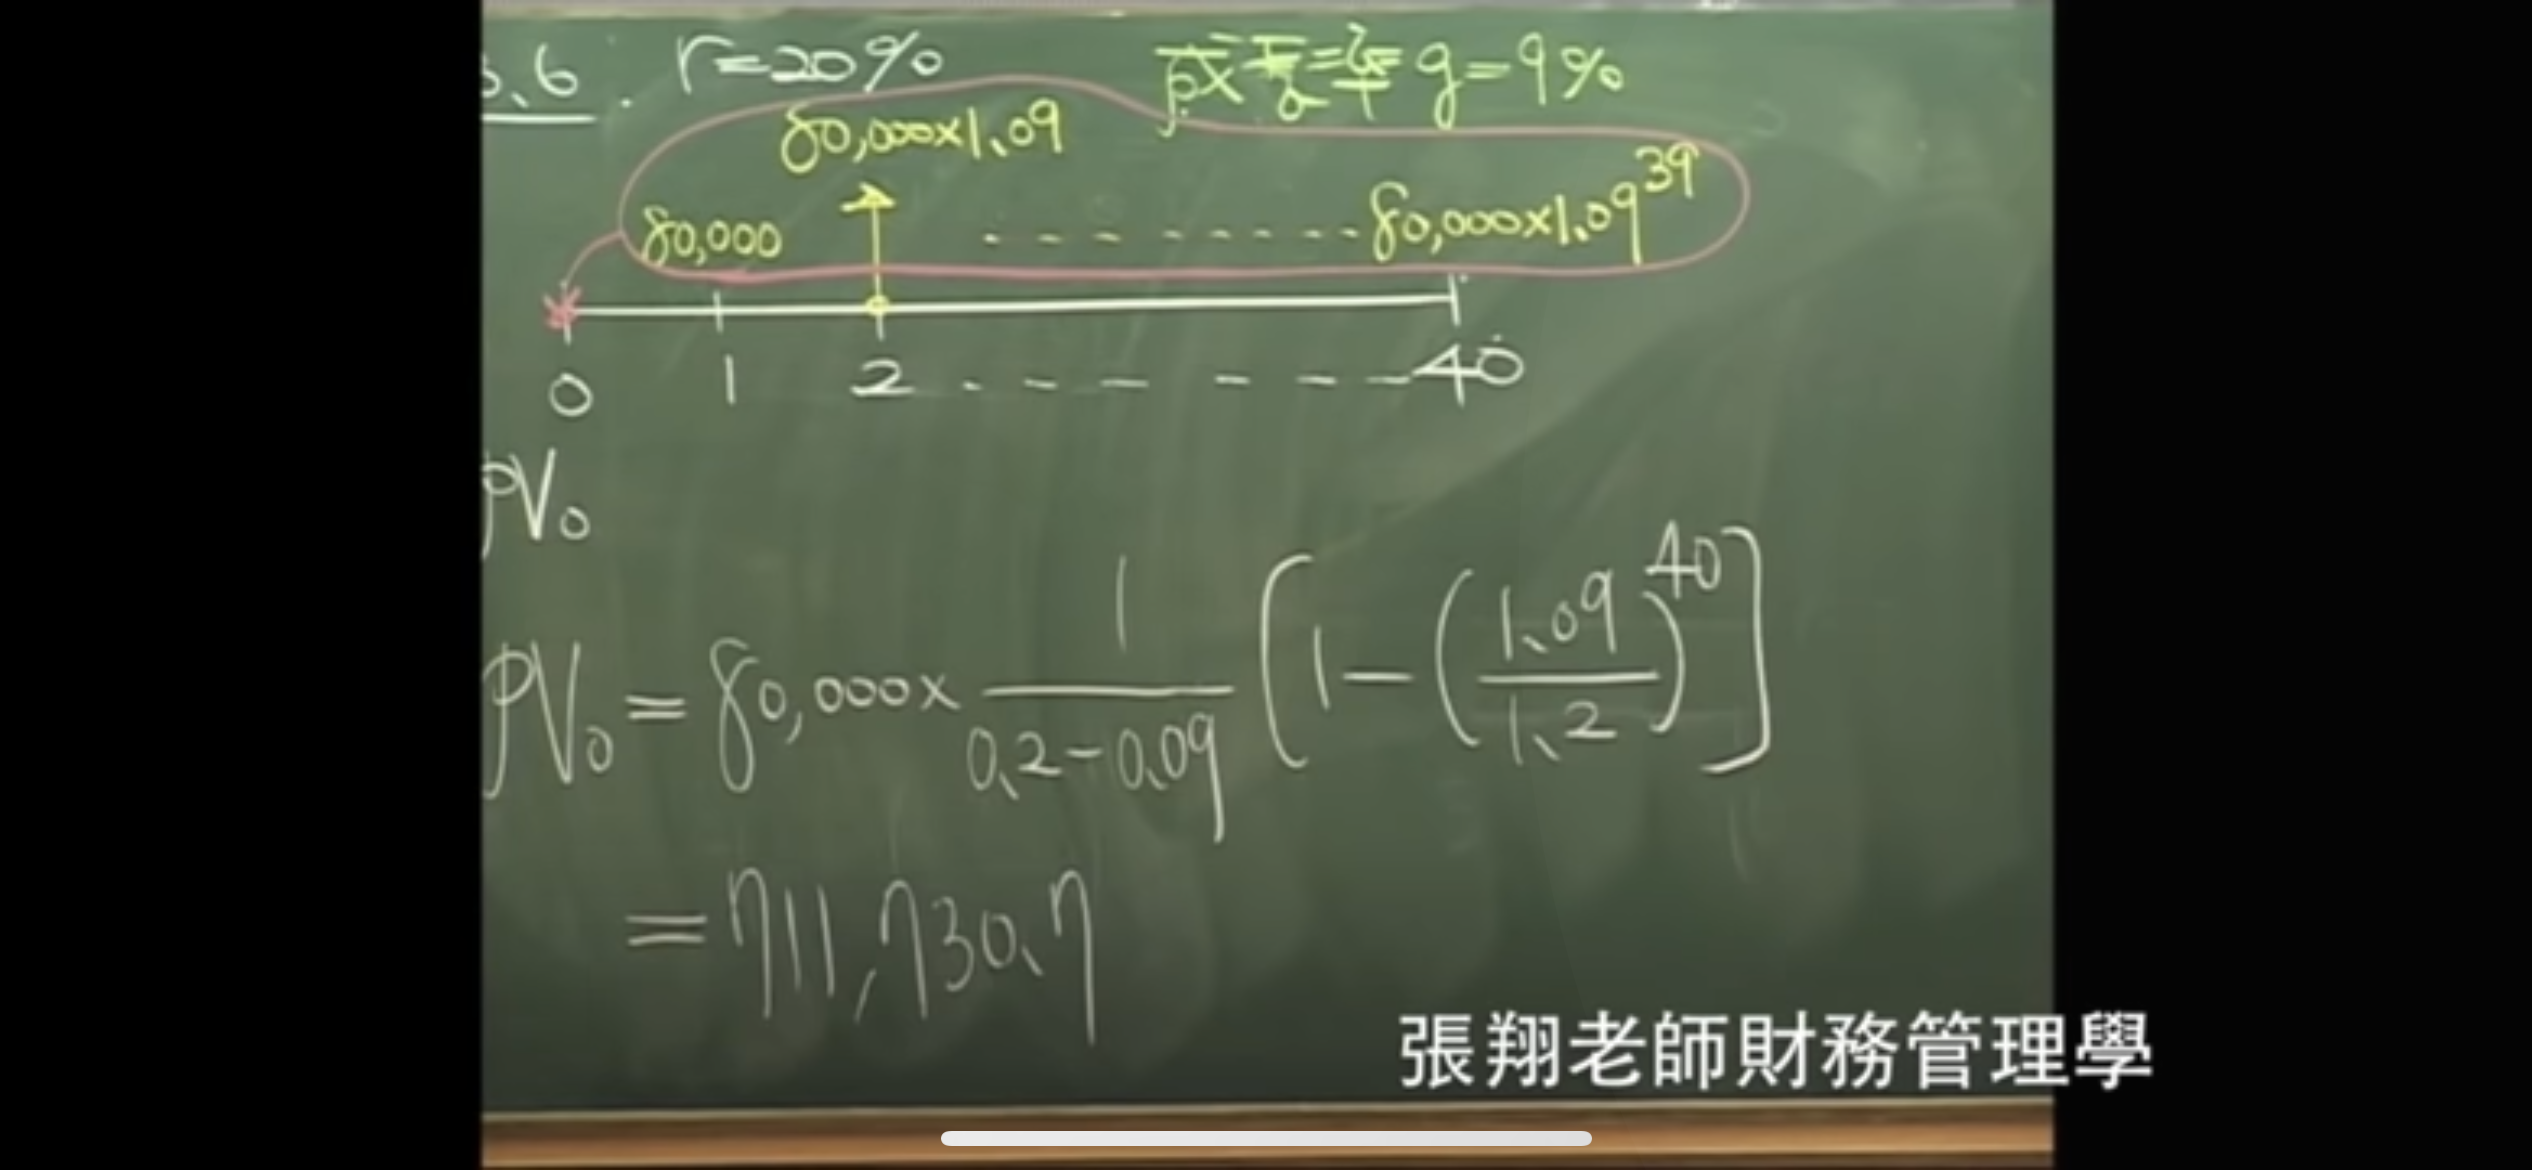 3.6. r=20%
成長率 g=9%
80,000×1.09
80,000 --------- 80,000×1.09³⁹
0 1 2 ------ 40
PV₀
PV₀ = 80,000× 1/(0.2-0.09) [1-(1.09/1.2)⁴⁰]
=711,730.7
張翔老師財務管理學